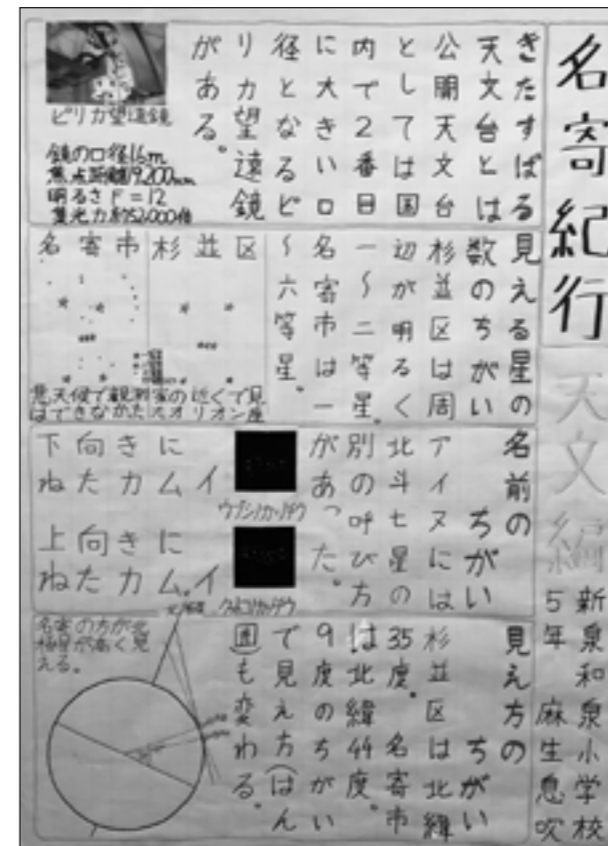 名寄紀行
天文編
新泉和泉小学校
5年 麻生息吹
きたすばる
天文台とは
公開天文台
としては国
内で2番目
に大きい口
径となるピ
リカ望遠鏡
がある。
ピリカ望遠鏡
鏡の口径1.6m
焦点距離19,200mm
明るさF=12
集光力約52,000倍
見える星の
数のちがい
杉並区は周
辺が明るく
一〜二等星。
名寄市は一
〜六等星。
杉並区
名寄市
家の近くで見
えたオリオン座
悪天候で観測
はできなかった
名前の
ちがい
アイヌには
北斗七星の
別の呼び方
があった。
上向きに
ねたカムイ。
下向きに
ねたカムイ
見え方の
ちがい
杉並区は北緯
35度。名寄市
は北緯44度。
9度のちがい
で見え方(はん
囲)も変わる。
名寄の方が北
極星が高く見
える。